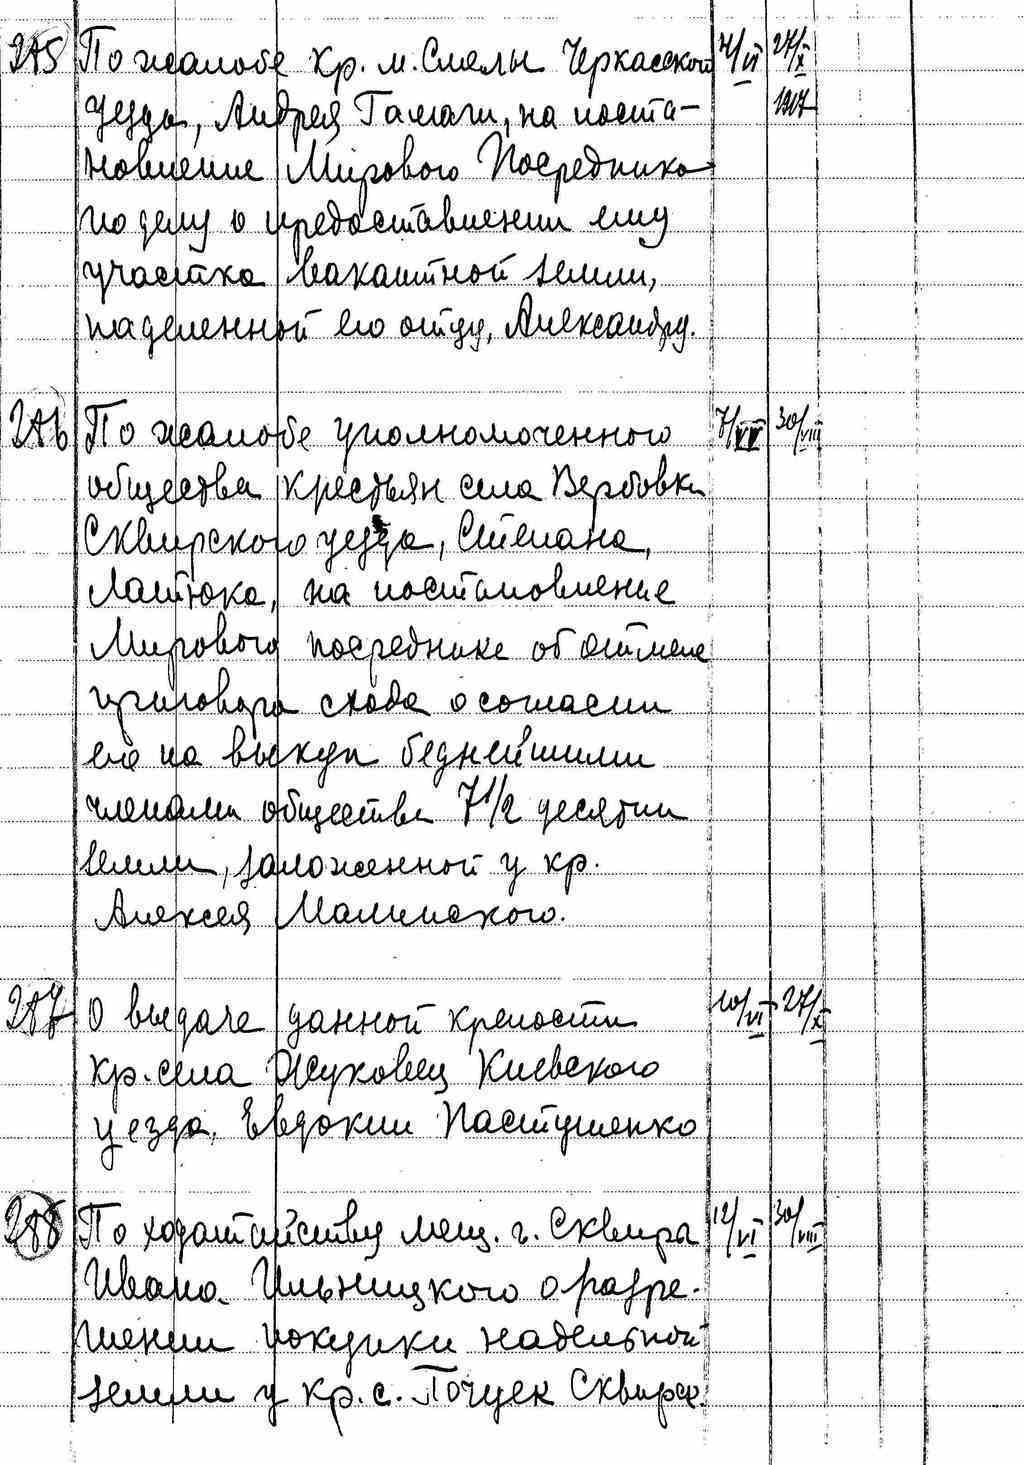 285 По жалобе кр. м. Смелы Черкасской 7/VI 27/X
уезда, Андрея Гамаги, на поста- 1907
новление Мирового Посредника
по делу о предоставлении ему
участка вакантной земли,
наделенной его отцу, Александру.
286 По жалобе уполномоченного 7/VI 30/VIII
общества крестьян села Вербовки
Сквирского уезда, Степана,
Лаштюка, на постановление
Мирового посредника об отмене
приговора схода о согласии
его на выкуп беднейшими
членами общества 7 1/2 десятин
земли, заложенной у кр.
Алексея Малинского.
287 О выдаче данной крепости 10/VI 27/X
кр. села Жуковец Киевского
уезда, Евдокии Пастушенко
288 По ходатайству мещ. г. Сквира 12/VI 30/VIII
Ивана Ильницкого о разре-
шении покупки надельной
земли у кр. с. Почуек Сквирск.